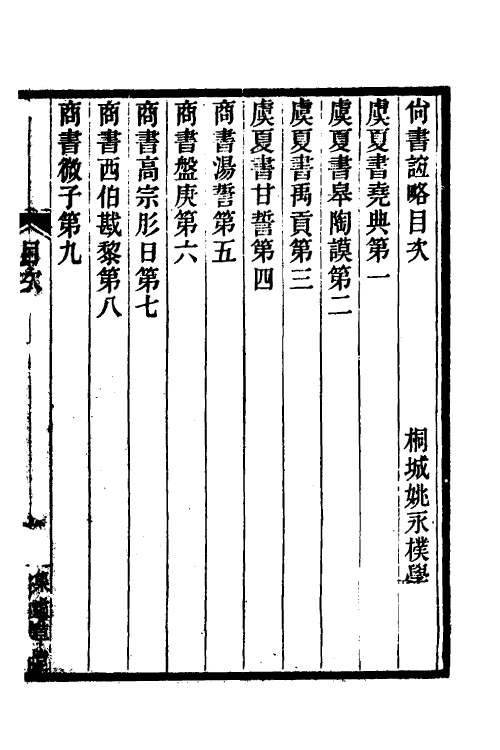 尙書誼略目次
桐城姚永樸學
虞夏書堯典第一
虞夏書皋陶謨第二
虞夏書禹貢第三
虞夏書甘誓第四
商書湯誓第五
商書盤庚第六
商書高宗肜日第七
商書西伯戡黎第八
商書微子第九
目次